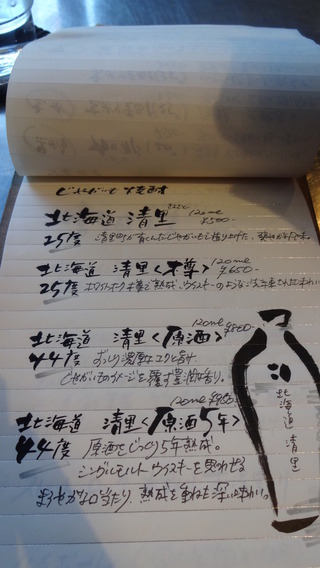 じゃがいも焼酎
北海道 清里 120ml ¥500-
25度 清里町が育んだじゃがいもで造り上げた、
北海道 清里〈樽〉 120ml ¥650-
25度 ホワイトオーク樽で熟成、ウイスキーのような
北海道 清里〈原酒〉 120ml ¥850-
44度 より濃厚なコクと香り
じゃがいものイメージを覆す豊潤な香り。
北海道 清里〈原酒5年〉 120ml
44度 原酒をじっくり5年熟成。
シングルモルトウイスキーを思わせる
まろやかな口当たり、熟成を重ねた深い味わい。
北海道 清里